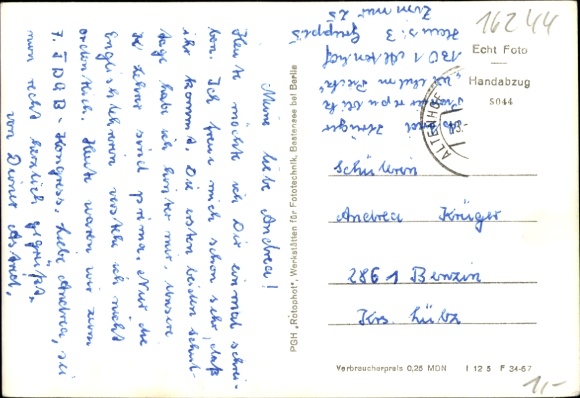 Meine liebe Andrea!
Heute möchte ich Dir einmal schrei-
ben. Ich freue mich schon sehr, daß
ihr kommt. Die ersten beiden Schul-
tage habe ich hinter mir, unsere
Lehrer sind prima. Nur die
Englischlehrerin verstehe ich nicht
ordentlich. Heute waren wir zum
7. FDGB-Kongress. Liebe Andrea, sei
nun recht herzlich gegrüßt
von Deiner Astrid.
PGH „Rotophot", Werkstätten für Fototechnik, Bestensee bei Berlin
Krüger
Pionierrepublik
„Wilhelm Pieck"
1301 Altenhof
Haus: 3
Gruppe 5
Zimmer 25
16244
Echt Foto
Handabzug
5044
ALTENHOF
Schülerin
Andrea Krüger
2861 Benzin
Krs Lübz
Verbraucherpreis 0,25 MDN I 12 5 F 34-67
1,-